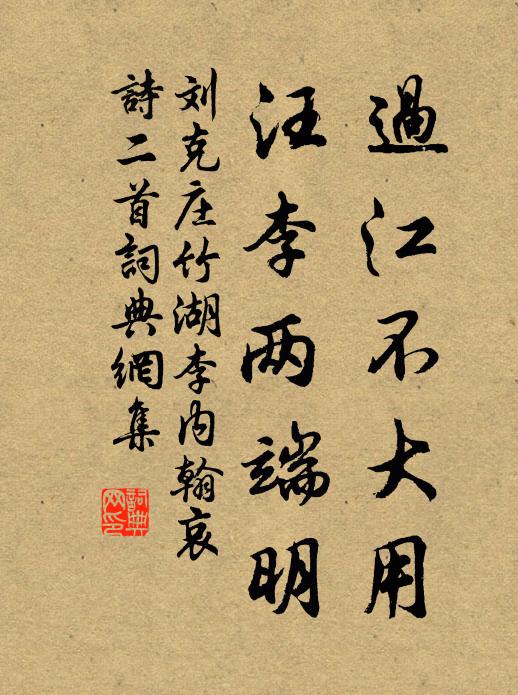 過江不大用
汪李两端明
刘克庄竹湖李内翰哀
詩二首詞典網集
詞典
网印